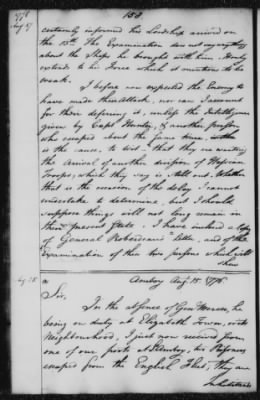 158
1776
Aug. 17
certainly informed his Lordship arrived on
the 12th. The Examination does not say any thing
about the Ships he brought with him, & only
extends to his Force which it mentions to be
weak.
I before now expected the Enemy to
have made their Attack, nor can I account
for their deferring it, unless the Intelligence
given by Capt. Hunter, & another person
who escaped about the same time, neither
is the cause, to wit, that they are waiting
the Arrival of another division of Hessian
Troops, which they say is still out. Whether
that is the occasion of the delay I cannot
undertake to determine, but I should
suppose things will not long remain in
their present State. I have inclosed a Copy
of General Roberdeau's letter, and of the
Examination of these two persons which will
shew
Amboy Aug. 15. 1776
Sir,
In the absence of Gen. Mercer, he
being on duty at Elizabeth Town, or its
Neighbourhood, I just now received from
one of our posts at Amboy, two Prisoners
escaped from the English Fleet, they are
Inhabitants